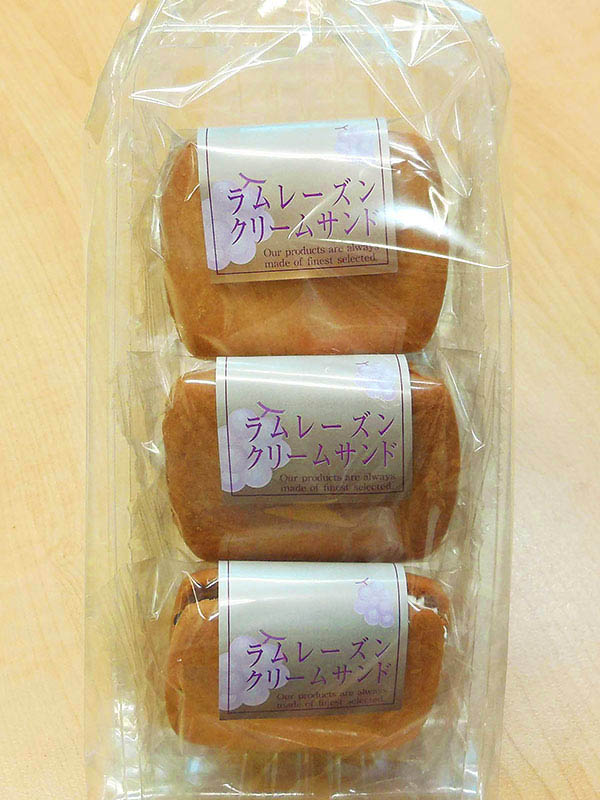 ラムレーズン
クリームサンド
Our products are always
made of finest selected.
ラムレーズン
クリームサンド
Our products are always
made of finest selected.
ラムレーズン
クリームサンド
Our products are always
made of finest selected.